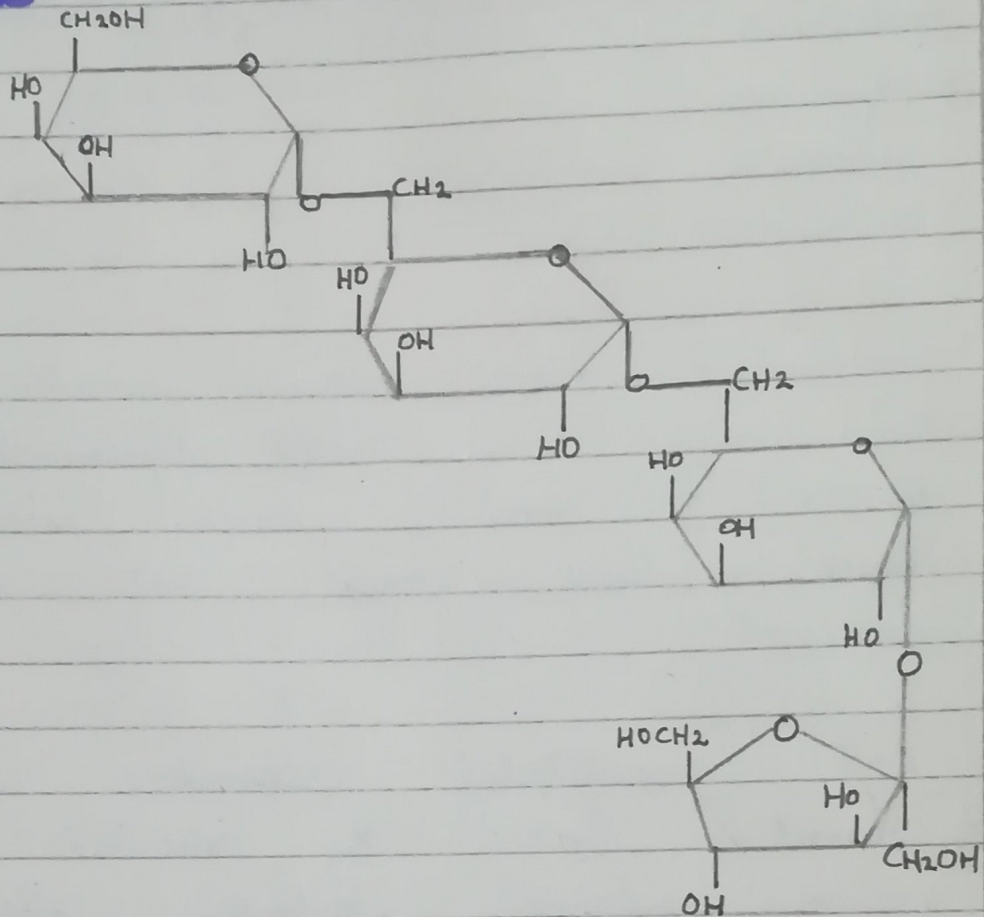 CH2OH
O
HO
OH
O CH2
HO
O
HO
OH
O CH2
HO
O
HO
OH
HO
O
HOCH2 O
HO
CH2OH
OH